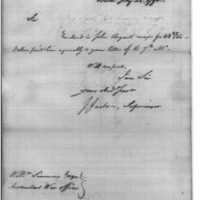 Sir
Enclosed is John Bryant's receipt for
dollars paid him agreeably to your letter of the 7th
With respect,
I am Sir
your Obed Servt
J Jackson, Supervisor
Willm Simmons Esqr
Accountant War office